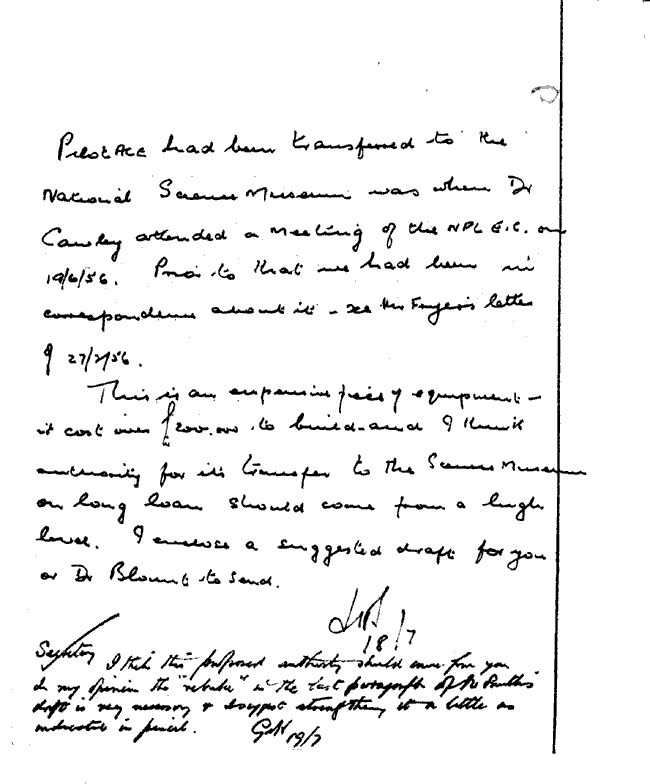 Pilot ACE had been transferred to the
National Science Museum was when Dr
Cawley attended a Meeting of the NPL E.C. on
19/6/56. Prior to that we had been in
correspondence about it - see letter
of 27/2/56.
This is an expensive piece of equipment -
it cost over £200,000 to build - and I think
authority for its transfer to the Science Museum
on long loan should come from a high
level. I enclose a suggested draft for you
or Dr Blount to send.
18/7
Secretary I think this proposed authority should come from you
In my opinion the "rebuke" in the last paragraph of
draft is very necessary & I suggest strengthening it a little as
indicated in pencil. 19/7